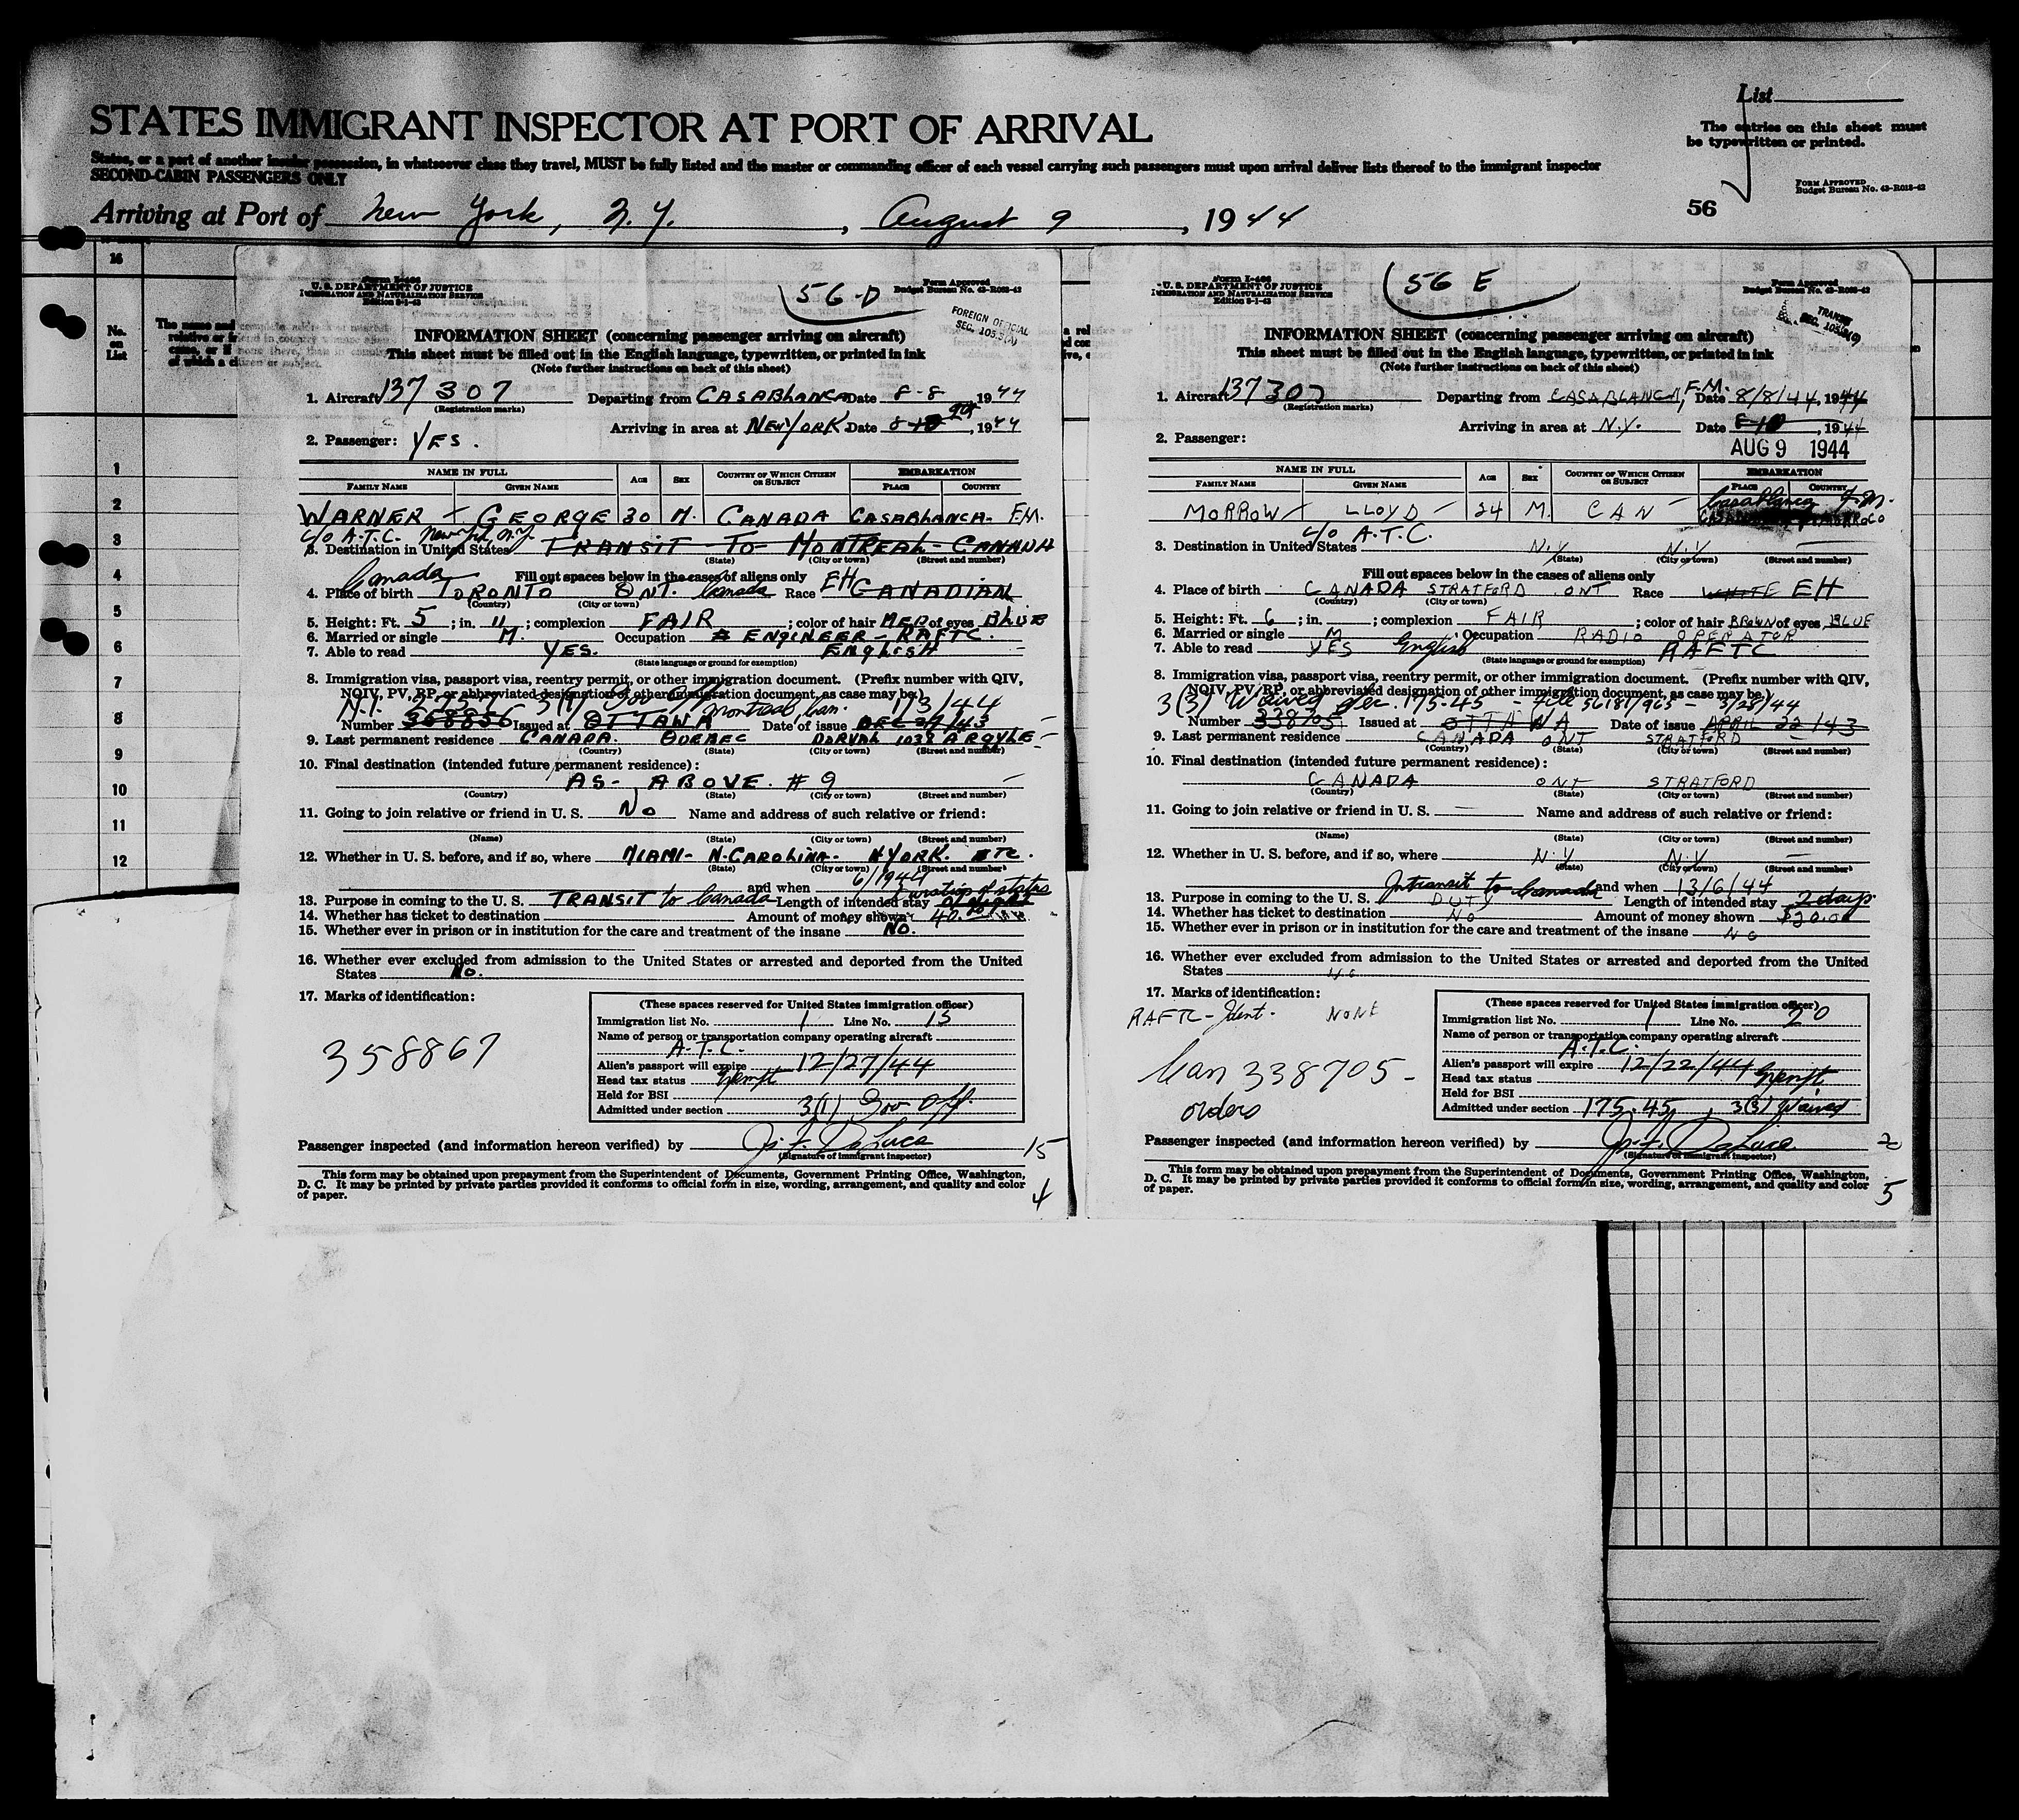 STATES IMMIGRANT INSPECTOR AT PORT OF ARRIVAL
List
The entries on this sheet must
be typewritten or printed.
States, or a port of another insular possession, in whatsoever class they travel, MUST be fully listed and the master or commanding officer of each vessel carrying such passengers must upon arrival deliver lists thereof to the immigrant inspector
SECOND-CABIN PASSENGERS ONLY
Form Approved
Budget Bureau No. 43-R018-42
56
Arriving at Port of New York, N.Y., August 9, 1944
16
No.
on
List
1
2
3
4
5
6
7
8
9
10
11
12
Form I-466
U. S. DEPARTMENT OF JUSTICE
Immigration and Naturalization Service
Edition 2-1-43
56-D
Form Approved
Budget Bureau No. 43-R065-42
FOREIGN OFFICIAL
SEC. 105.3(A)
INFORMATION SHEET (concerning passenger arriving on aircraft)
This sheet must be filled out in the English language, typewritten, or printed in ink
(Note further instructions on back of this sheet)
1. Aircraft 137307 Departing from CASABLANCA Date 8-8 1944
(Registration marks)
Arriving in area at NEW YORK Date 8-10 9th, 1944
2. Passenger: YES.
NAME IN FULL Age Sex Country of Which Citizen or Subject EMBARKATION
Family Name Given Name Place Country
WARNER - GEORGE 30 M. CANADA CASABLANCA- F.M.
c/o A.T.C. New York, N.Y.
3. Destination in United States TRANSIT TO MONTREAL - CANADA
(State) (City or town) (Street and number)
Canada Fill out spaces below in the cases of aliens only
4. Place of birth TORONTO ONT. Canada Race EH CANADIAN
(Country) (City or town)
5. Height: Ft. 5; in. 11; complexion FAIR; color of hair MED of eyes BLUE
6. Married or single M. Occupation ENGINEER - RAFTC.
7. Able to read YES. ENGLISH
(State language or ground for exemption)
8. Immigration visa, passport visa, reentry permit, or other immigration document. (Prefix number with QIV,
NQIV, PV, RP, or abbreviated designation of other immigration document, as case may be.)
3(1) Gov Off Montreal Can. 1/3/44
Number 358856 Issued at OTTAWA Date of issue DEC 27/43
9. Last permanent residence CANADA. QUEBEC DORVAL 1038 ARGYLE
(Country) (State) (City or town) (Street and number)
10. Final destination (intended future permanent residence):
AS- ABOVE. #9
(Country) (State) (City or town) (Street and number)
11. Going to join relative or friend in U. S. NO Name and address of such relative or friend:
(Name) (State) (City or town) (Street and number)
12. Whether in U. S. before, and if so, where MIAMI- N-CAROLINA- N-YORK. ETC.
(State) (City or town) (Street and number)
and when 6/1944
13. Purpose in coming to the U. S. TRANSIT to Canada Length of intended stay Duration of status
14. Whether has ticket to destination Amount of money shown 40.00
15. Whether ever in prison or in institution for the care and treatment of the insane NO.
16. Whether ever excluded from admission to the United States or arrested and deported from the United
States No.
17. Marks of identification:
358867
(These spaces reserved for United States immigration officer)
Immigration list No. 1 Line No. 15
Name of person or transportation company operating aircraft
A.T.C.
Alien's passport will expire 12/27/44
Head tax status Exempt
Held for BSI
Admitted under section 3(1) Gov Off.
Passenger inspected (and information hereon verified) by J. F. DaLuca 15
(Signature of immigrant inspector)
This form may be obtained upon prepayment from the Superintendent of Documents, Government Printing Office, Washington,
D. C. It may be printed by private parties provided it conforms to official form in size, wording, arrangement, and quality and color
of paper.
4
Form I-466
U. S. DEPARTMENT OF JUSTICE
Immigration and Naturalization Service
Edition 2-1-43
56 E
Form Approved
Budget Bureau No. 43-R065-42
TRANSIT
INFORMATION SHEET (concerning passenger arriving on aircraft)
This sheet must be filled out in the English language, typewritten, or printed in ink
(Note further instructions on back of this sheet)
1. Aircraft 137307 Departing from CASABLANCA, F.M. Date 8/8/44, 1944
(Registration marks)
Arriving in area at N.Y. Date 8-10, 1944
2. Passenger: AUG 9 1944
NAME IN FULL Age Sex Country of Which Citizen or Subject EMBARKATION
Family Name Given Name Place Country
MORROW - LLOYD - 24 M. CAN - Casablanca F.M.
c/o A.T.C.
3. Destination in United States N.Y N.Y
(State) (City or town) (Street and number)
Fill out spaces below in the cases of aliens only
4. Place of birth CANADA STRATFORD ONT Race WHITE EH
(Country) (City or town)
5. Height: Ft. 6; in. ; complexion FAIR; color of hair BROWN of eyes BLUE
6. Married or single M Occupation RADIO OPERATOR
7. Able to read YES English RAFTC
(State language or ground for exemption)
8. Immigration visa, passport visa, reentry permit, or other immigration document. (Prefix number with QIV,
NQIV, PV, RP, or abbreviated designation of other immigration document, as case may be.)
3(3) Waived Sec. 175.45 - File 56181/965 - 3/28/44
Number 338705 Issued at OTTAWA Date of issue APRIL 22/43
9. Last permanent residence CANADA ONT STRATFORD
(Country) (State) (City or town) (Street and number)
10. Final destination (intended future permanent residence):
CANADA ONT STRATFORD
(Country) (State) (City or town) (Street and number)
11. Going to join relative or friend in U. S. Name and address of such relative or friend:
(Name) (State) (City or town) (Street and number)
12. Whether in U. S. before, and if so, where N.Y N.Y
(State) (City or town) (Street and number)
Intransit to Canada and when 13/6/44
13. Purpose in coming to the U. S. DUTY Length of intended stay 2 days
14. Whether has ticket to destination NO Amount of money shown $20.00
15. Whether ever in prison or in institution for the care and treatment of the insane NO
16. Whether ever excluded from admission to the United States or arrested and deported from the United
States NO
17. Marks of identification:
RAFTC - Ident. NONE
Can 338705 -
orders
(These spaces reserved for United States immigration officer)
Immigration list No. 1 Line No. 20
Name of person or transportation company operating aircraft
A.T.C.
Alien's passport will expire 12/22/44
Head tax status Exempt
Held for BSI
Admitted under section 175.45, 3(3) Waived
Passenger inspected (and information hereon verified) by J. F. DaLuca 20
(Signature of immigrant inspector)
This form may be obtained upon prepayment from the Superintendent of Documents, Government Printing Office, Washington,
D. C. It may be printed by private parties provided it conforms to official form in size, wording, arrangement, and quality and color
of paper.
5